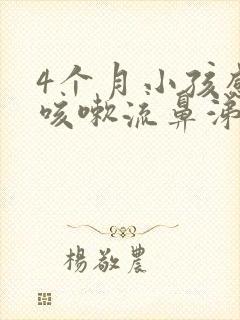 4个月小孩感
咳嗽流鼻涕
楊敬農